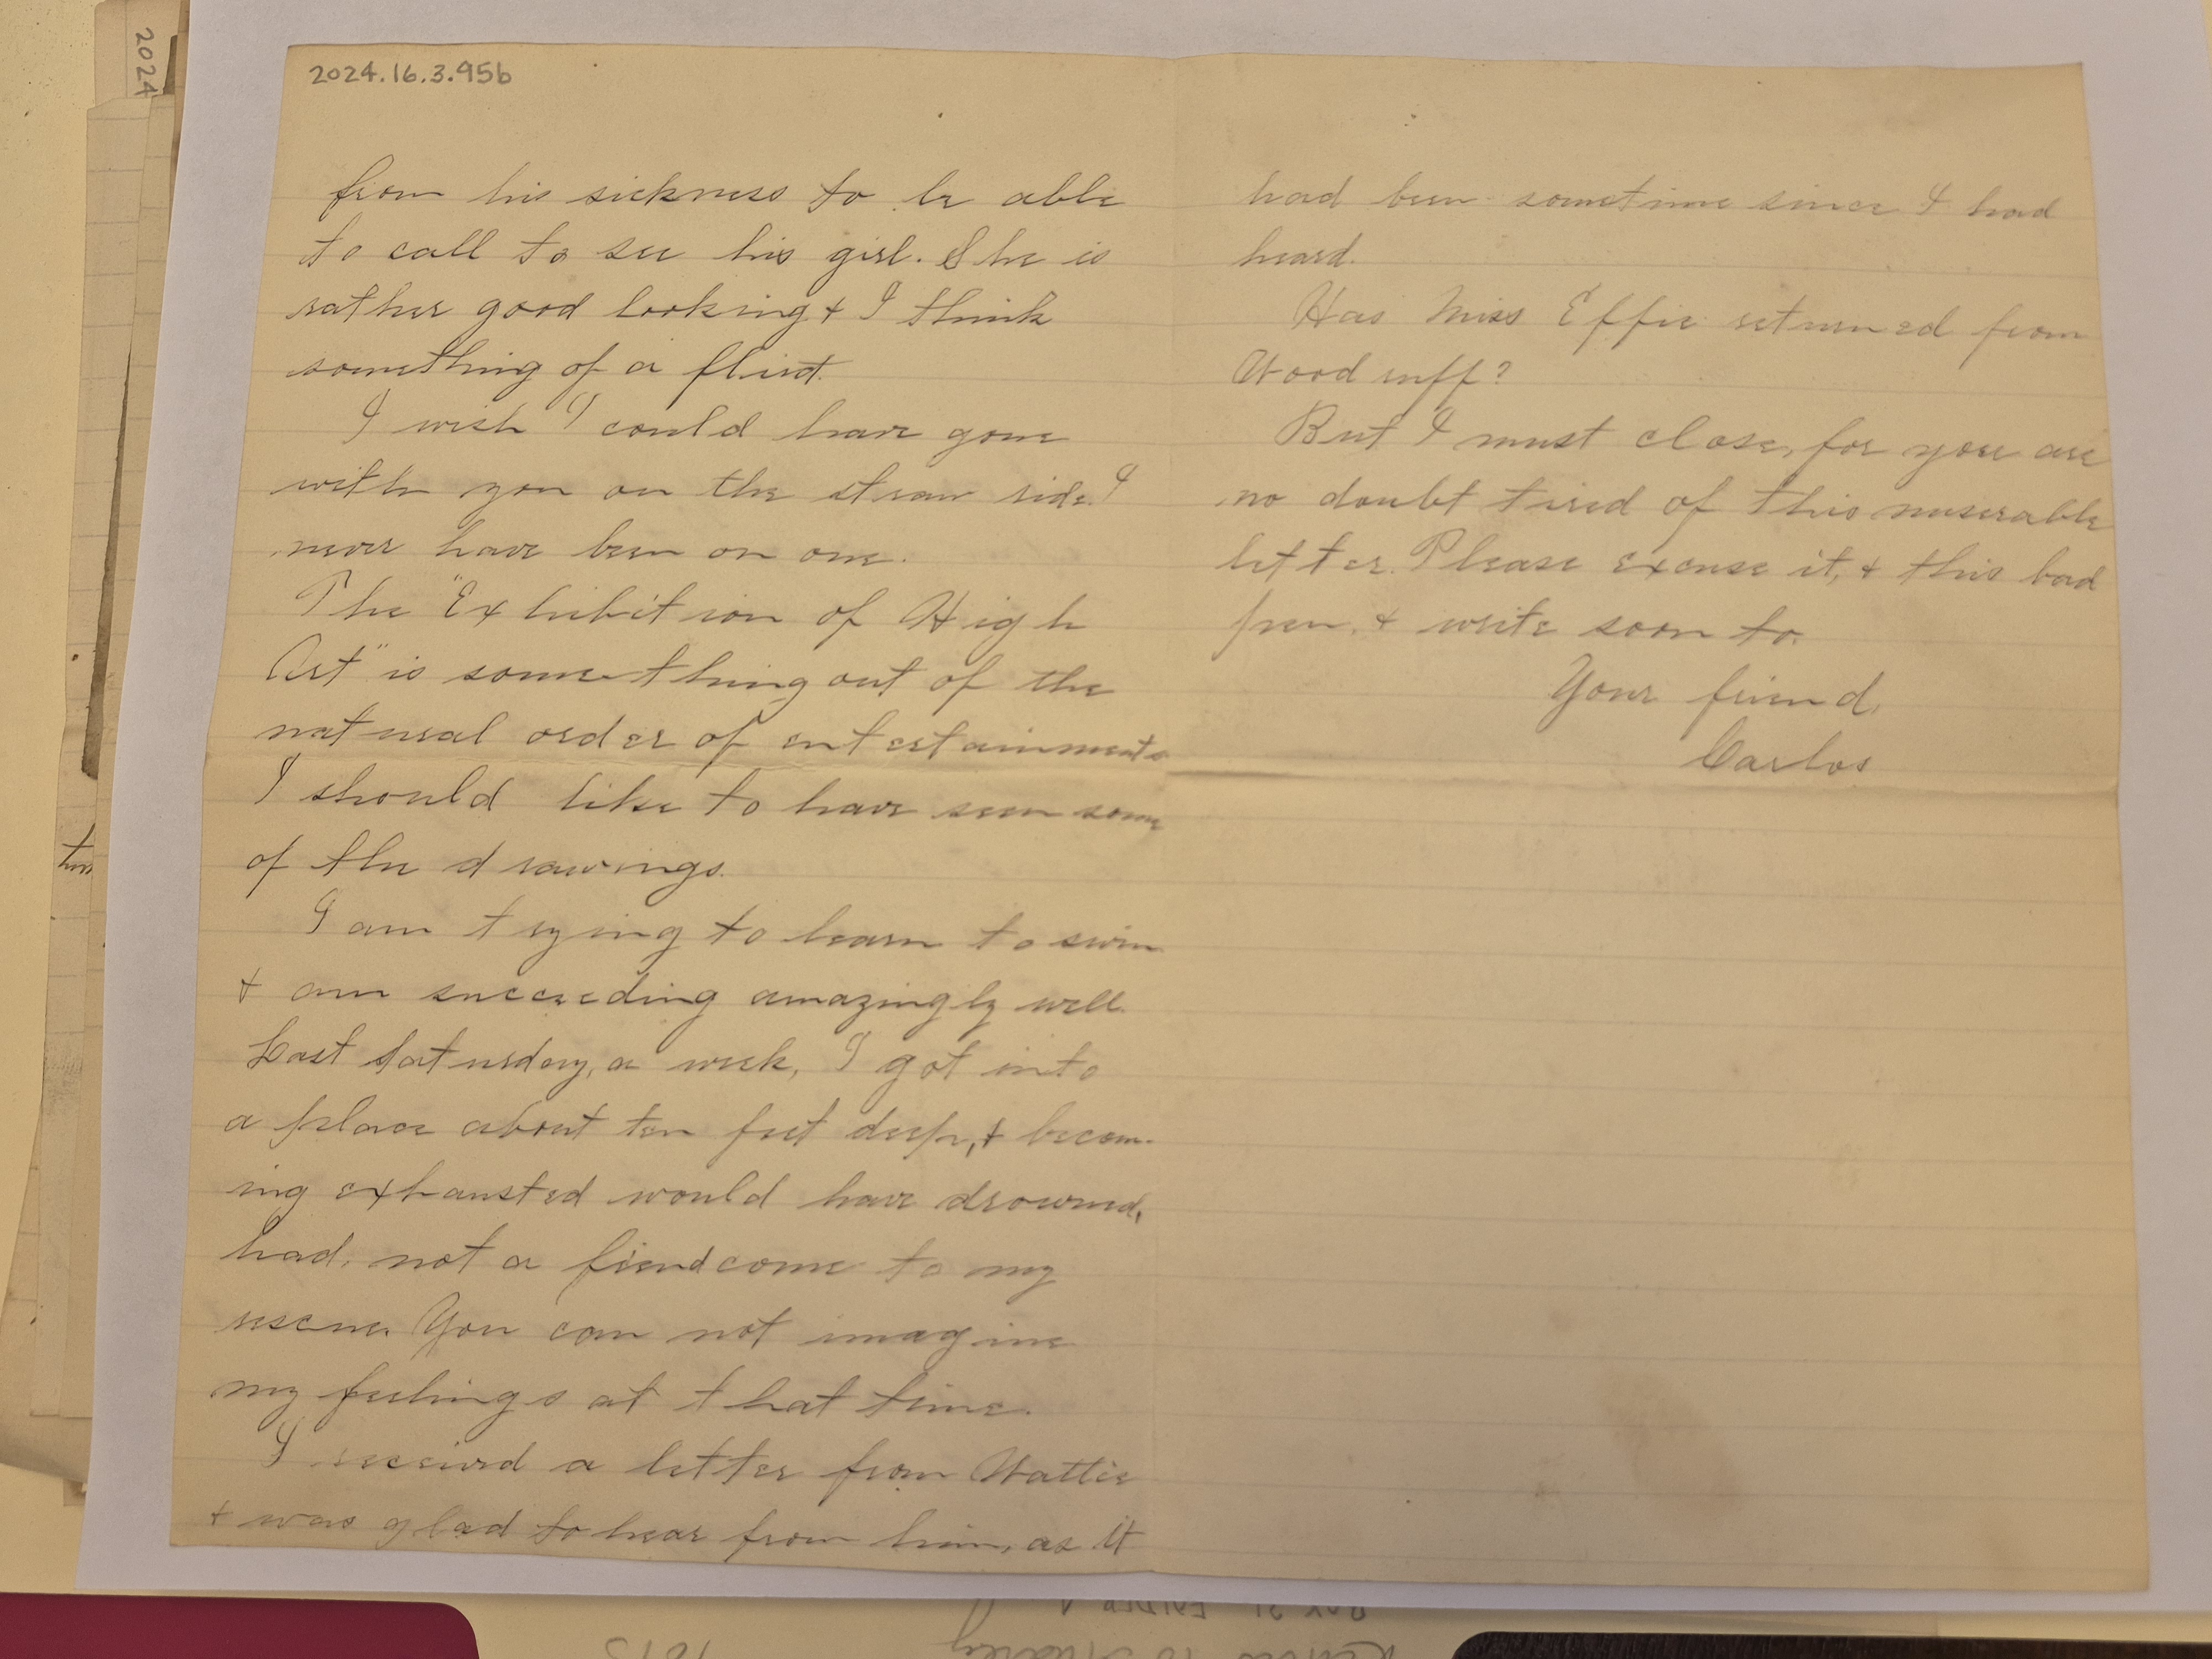 2024.16.3.95b
2024
from his sickness to be able
to call to see his girl. She is
rather good looking & I think
something of a flirt.
I wish I could have gone
with you on the straw ride. I
never have been on one.
The "Exhibition of High
Art" is something out of the
natural order of entertainments
I should like to have seen some
of the drawings.
I am trying to learn to swim
& am succeeding amazingly well.
Last Saturday, a week, I got into
a place about ten feet deep, & becom-
ing exhausted would have drowned,
had, not a fiend come to my
rescue. You can not imagine
my feelings at that time.
I received a letter from Wattie
& was glad to hear from him, as it
had been sometime since I had
heard.
Has Miss Effie returned from
Woodruff?
But I must close, for you are
no doubt tired of this miserable
letter. Please excuse it, & this bad
pen, & write soon to.
Your friend,
Carlos